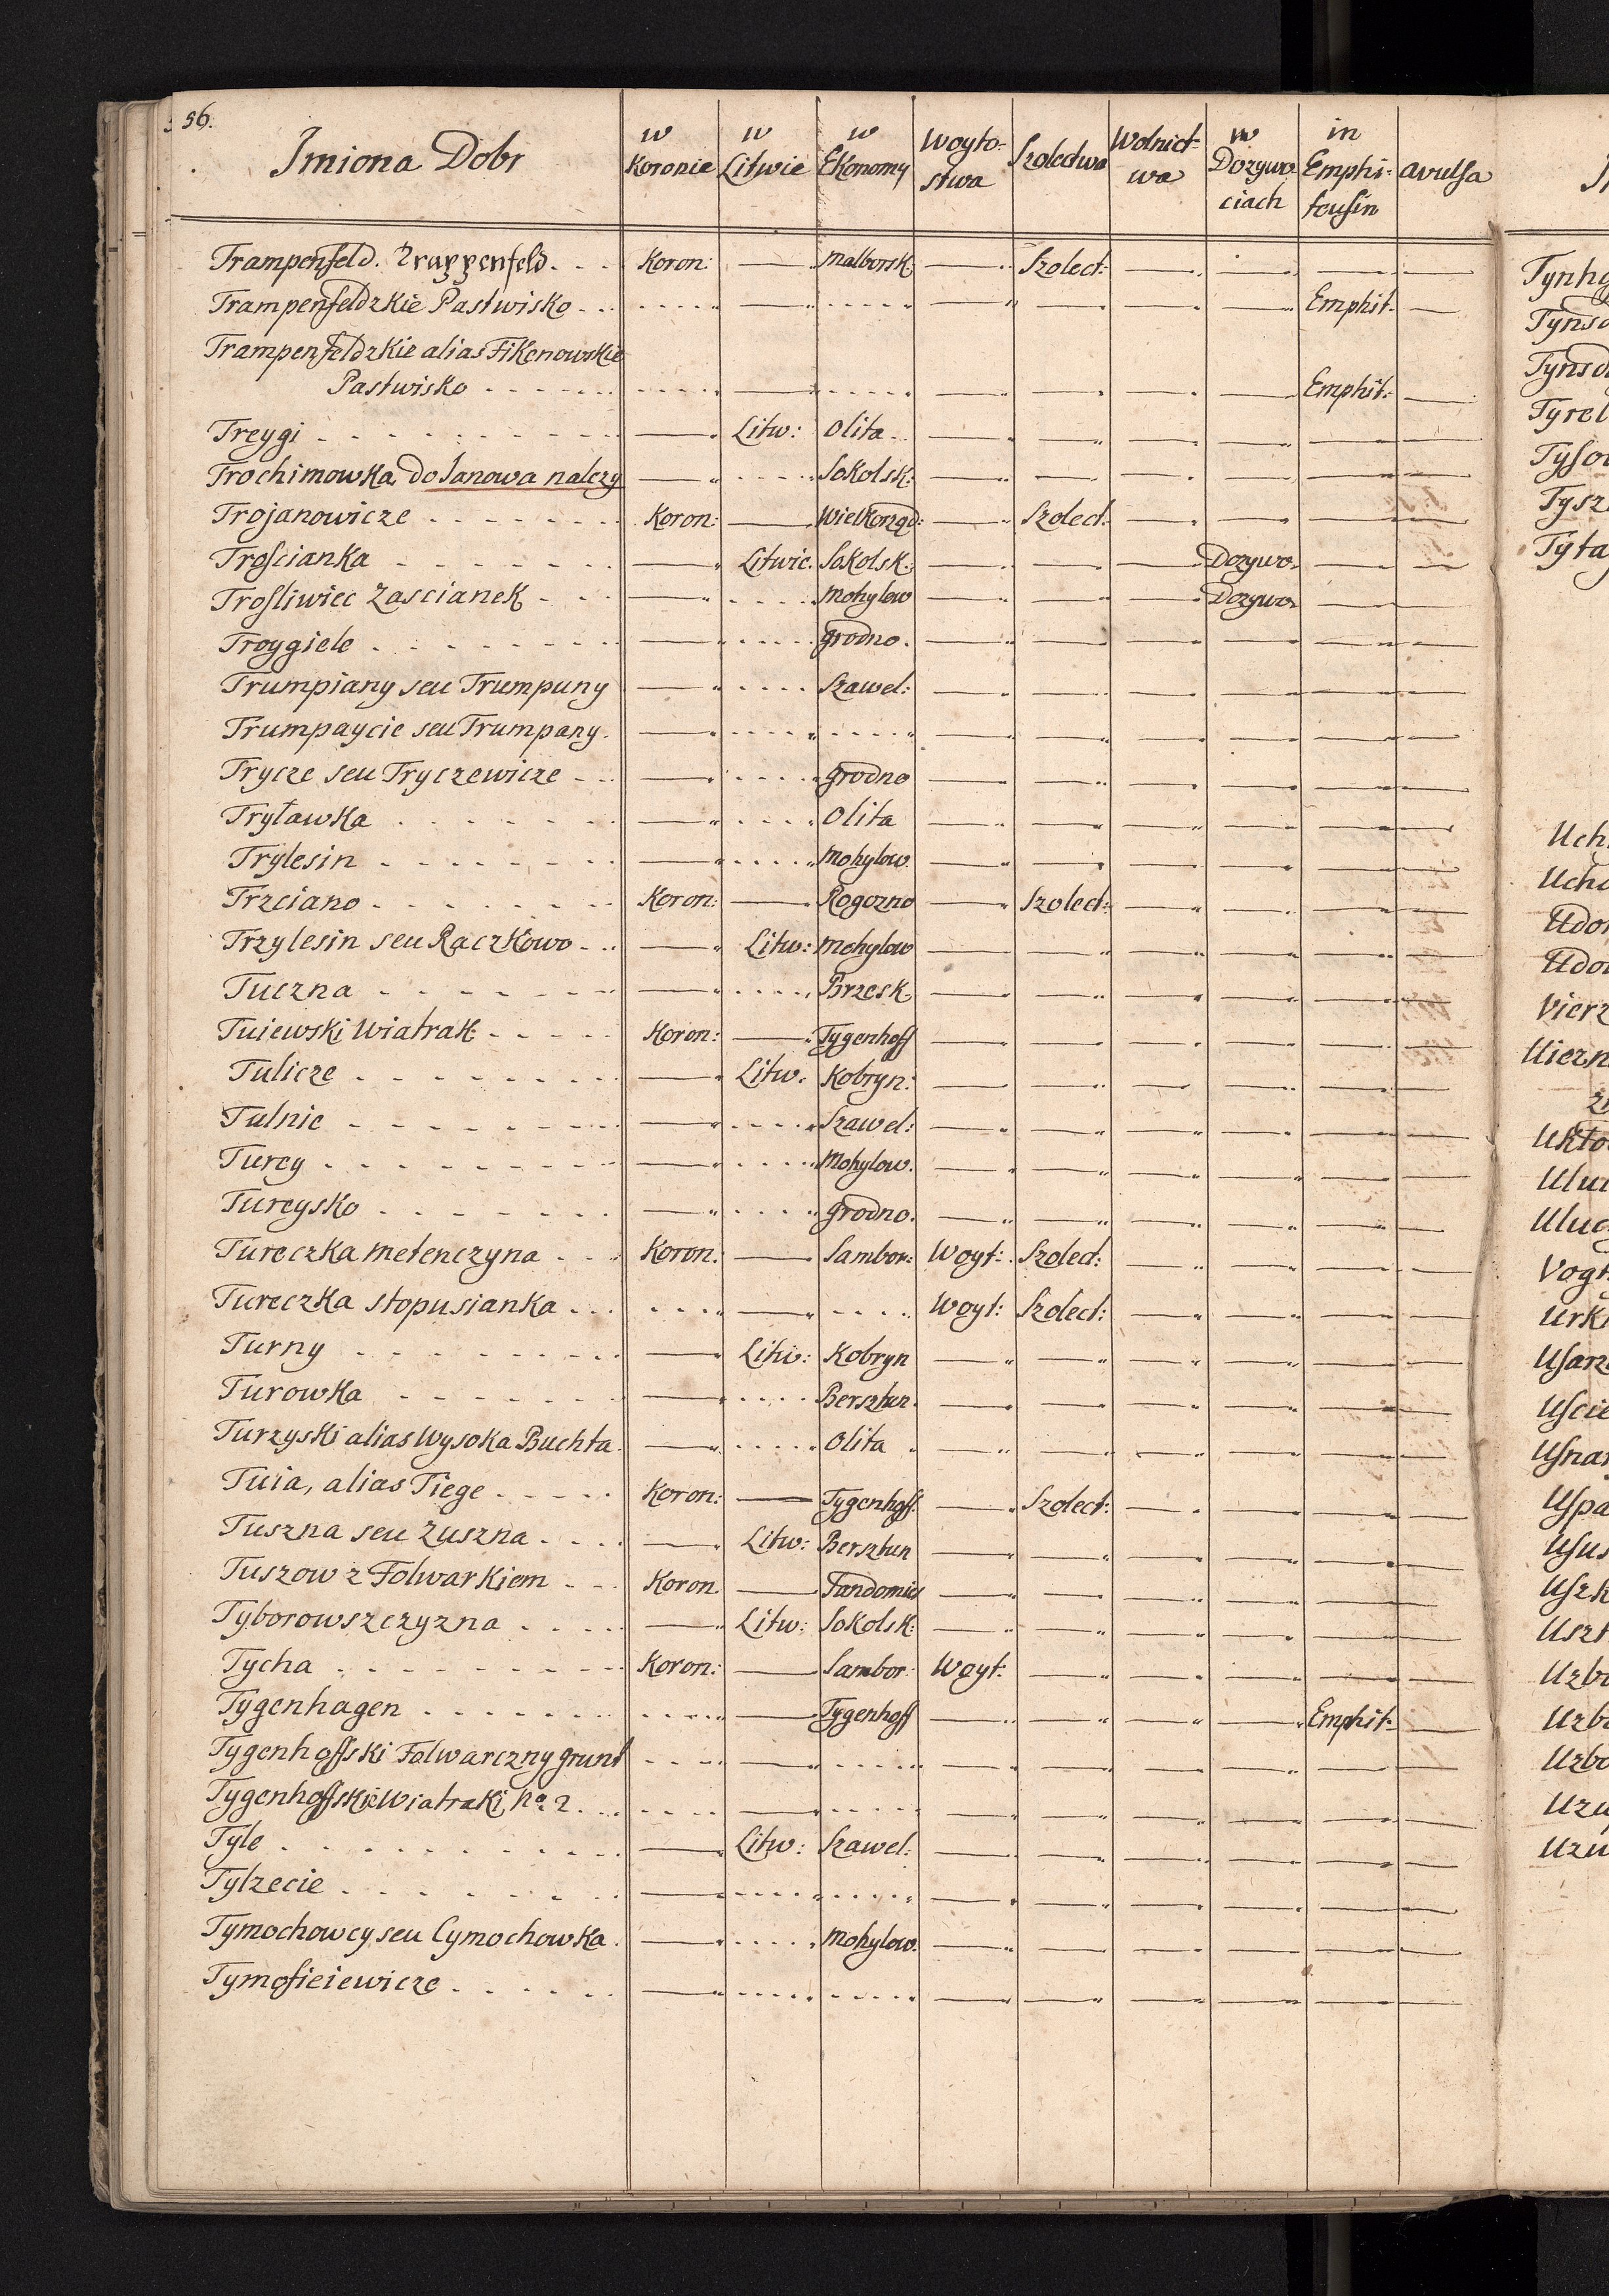 56.
Imiona Dobr | w Koronie | w Litwie | w Ekonomy | Woyto-stwa | Szolectwa | Wolnict-wa | w Dozywo ciach | in Emphi-teusin | avulsa
Trampenfeld. Trappenfeld. | Koron: | — | Malborsk: | — | Szolect: | — | — | — | —
Trampenfeldzkie Pastwisko | .... | — | .... | — | — | — | — | Emphit: | —
Trampenfeldzkie alias Fikenowskie
Pastwisko | .... | — | .... | — | — | — | — | Emphit: | —
Treygi | — | Litw: | Olita | — | — | — | — | — | —
Trochimowka, do Janowa nalezy | — | .... | Sokolsk: | — | — | — | — | — | —
Trojanowicze | Koron: | — | Wielkorząd: | — | Szolect: | — | — | — | —
Troscianka | — | Litwie. | Sokolsk: | — | — | — | Dozywo. | — | —
Trosliwiec Zascianek | — | .... | Mohylew | — | — | — | Dozywo | — | —
Troygiele | — | .... | Grodno. | — | — | — | — | — | —
Trumpiany seu Trumpuny | — | .... | Szawel: | — | — | — | — | — | —
Trumpaycie seu Trumpany. | — | .... | .... | — | — | — | — | — | —
Trycze seu Tryczewicze | — | .... | Grodno | — | — | — | — | — | —
Tryławka | — | .... | Olita | — | — | — | — | — | —
Trylesin | — | .... | Mohylow. | — | — | — | — | — | —
Trzciano | Koron: | — | Rogozno | — | Szolect: | — | — | — | —
Trzylesin seu Raczkowo | — | Litw: | Mohylow | — | — | — | — | — | —
Tuczna | — | .... | Brzesk | — | — | — | — | — | —
Tuiewski Wiatrak | Koron: | — | Tygenhoff | — | — | — | — | — | —
Tulicze | — | Litw. | Kobryn: | — | — | — | — | — | —
Tulnie | — | .... | Szawel: | — | — | — | — | — | —
Turcy | — | .... | Mohylow. | — | — | — | — | — | —
Turcysko | — | .... | Grodno. | — | — | — | — | — | —
Tureczka Metenczyna | Koron: | — | Sambor: | Woyt: | Szolect: | — | — | — | —
Tureczka stopusianka | .... | — | .... | Woyt: | Szolect: | — | — | — | —
Turny | — | Litw: | Kobryn | — | — | — | — | — | —
Turowka | — | .... | Bersztun. | — | — | — | — | — | —
Turzyski alias Wysoka Buchta. | — | .... | Olita | — | — | — | — | — | —
Tuia, alias Tiege | Koron: | — | Tygenhoff. | — | Szolect: | — | — | — | —
Tuszna seu Zuszna | — | Litw: | Bersztun | — | — | — | — | — | —
Tuszow z Folwarkiem | Koron | — | | — | — | — | — | — | —
Tyborowszczyzna | — | Litw: | Sokolsk: | — | — | — | — | — | —
Tycha | Koron: | — | Sambor: | Woyt: | — | — | — | — | —
Tygenhagen | .... | — | Tygenhoff | — | — | — | — | Emphit: | —
Tygenhoffski Folwarczny grunt | .... | — | .... | — | — | — | — | — | —
Tygenhoffskie Wiatraki, No. 2. | .... | — | .... | — | — | — | — | — | —
Tyle | — | Litw: | Szawel: | — | — | — | — | — | —
Tylzecie | — | .... | .... | — | — | — | — | — | —
Tymochowcy seu Cymochowka. | — | .... | Mohylow. | — | — | — | — | — | —
Tymofieiewicze | — | .... | .... | — | — | — | — | — | —